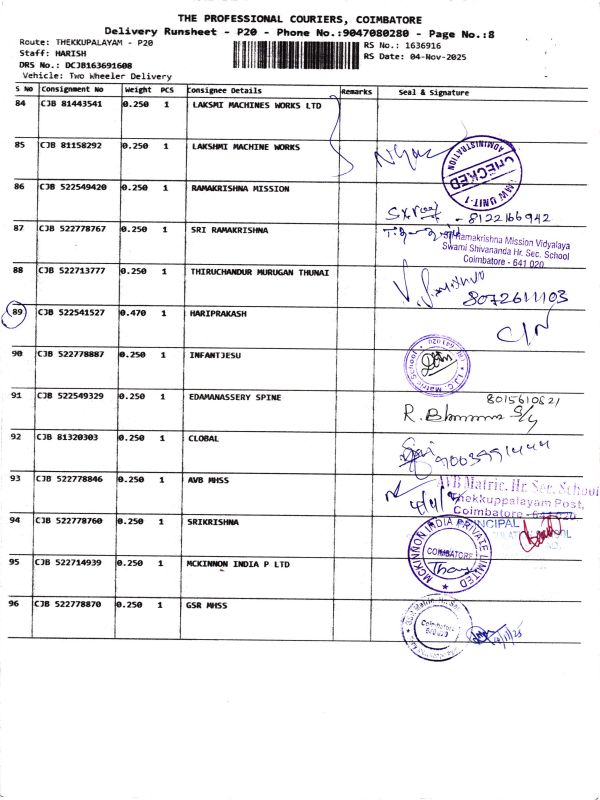 THE PROFESSIONAL COURIERS, COIMBATORE
Delivery Runsheet - P20 - Phone No.:9047080280 - Page No.:8
Route: THEKKUPALAYAM - P20
RS No.: 1636916
Staff: HARISH
RS Date: 04-Nov-2025
DRS No.: DCJB163691608
Vehicle: Two Wheeler Delivery
S No Consignment No Weight PCS Consignee Details Remarks Seal & Signature
84 CJB 81443541 0.250 1 LAKSMI MACHINES WORKS LTD
85 CJB 81158292 0.250 1 LAKSHMI MACHINE WORKS
ADMINISTRATION
CHECKED
UNIT-1
86 CJB 522549420 0.250 1 RAMAKRISHNA MISSION
- 8122166942
87 CJB 522778767 0.250 1 SRI RAMAKRISHNA
Sri Ramakrishna Mission Vidyalaya
Swami Shivananda Hr. Sec. School
Coimbatore - 641 020
88 CJB 522713777 0.250 1 THIRUCHANDUR MURUGAN THUNAI
8072611103
89 CJB 522541527 0.470 1 HARIPRAKASH
C/N
90 CJB 522778887 0.250 1 INFANTJESU
Matric School
91 CJB 522549329 0.250 1 EDAMANASSERY SPINE
8015610621
92 CJB 81320303 0.250 1 CLOBAL
9003991444
93 CJB 522778846 0.250 1 AVB MHSS
AVB Matric. Hr. Sec. School
Thekkuppalayam Post,
Coimbatore - 641 020
94 CJB 522778760 0.250 1 SRIKRISHNA
PRINCIPAL
95 CJB 522714939 0.250 1 MCKINNON INDIA P LTD
MCKINNON INDIA PRIVATE LIMITED
COIMBATORE
96 CJB 522778870 0.250 1 GSR MHSS
Coimbatore